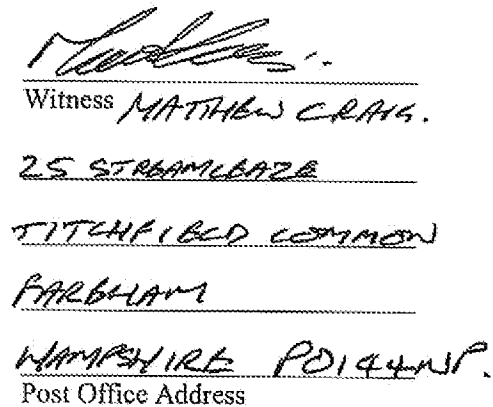 Witness MATTHEW CRAIG.
25 STREAMLEAZE
TITCHFIELD COMMON
FAREHAM
HAMPSHIRE PO14 4NP.
Post Office Address